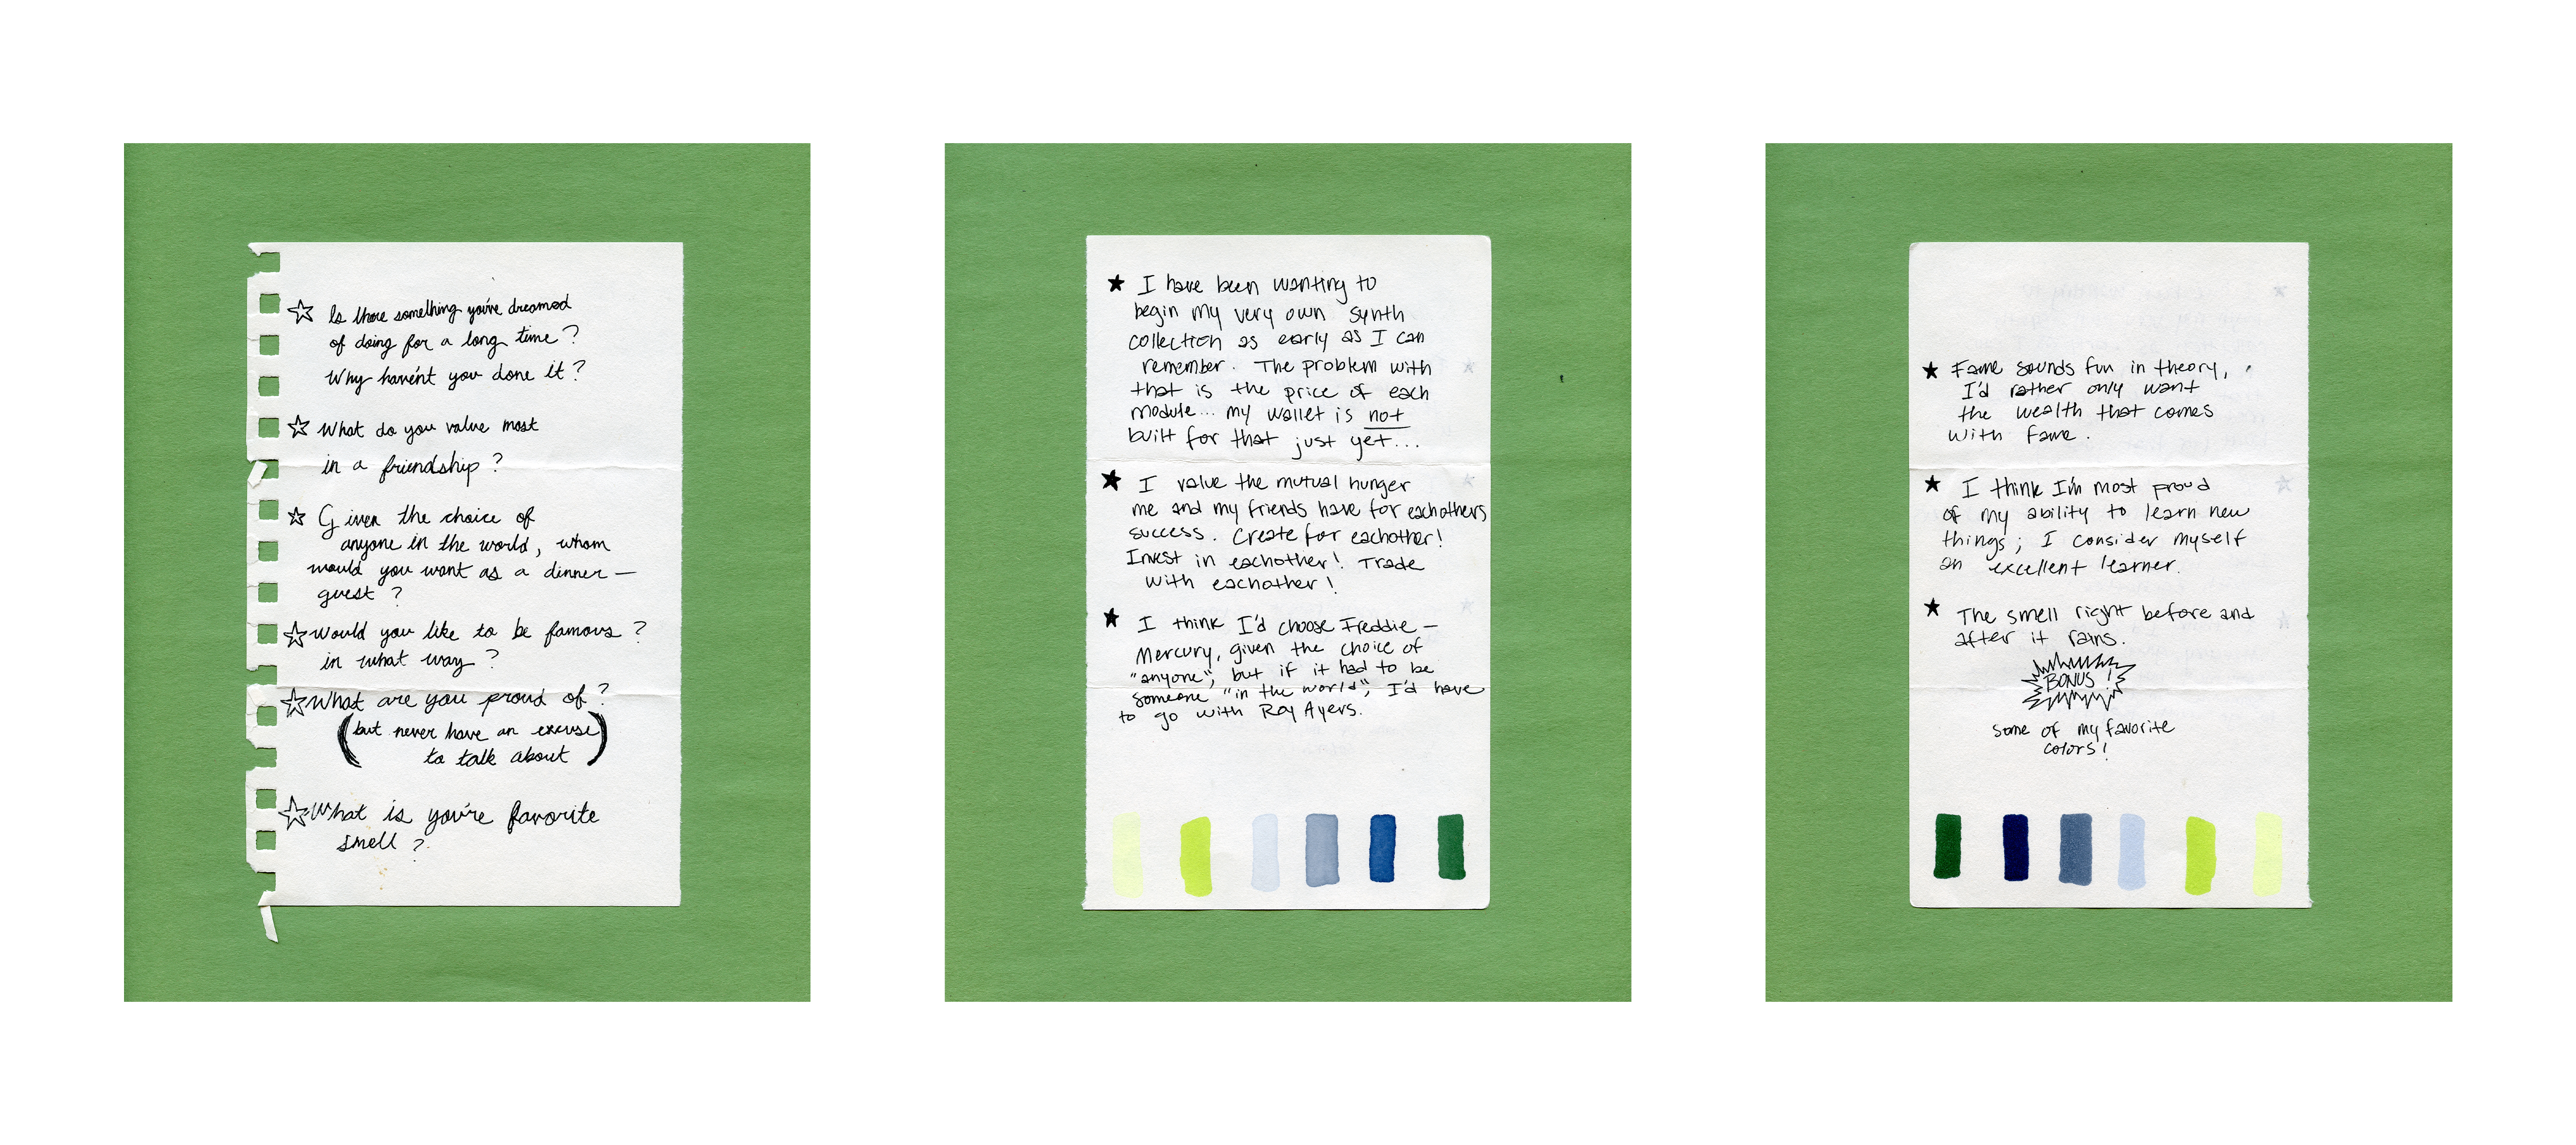 Is there something you've dreamed
of doing for a long time?
Why haven't you done it?
What do you value most
in a friendship?
Given the choice of
anyone in the world, whom
would you want as a dinner—
guest?
Would you like to be famous?
in what way?
What are you proud of?
(but never have an excuse
to talk about)
What is you're favorite
smell?
I have been wanting to
begin my very own synth
collection as early as I can
remember. The problem with
that is the price of each
module... my wallet is not
built for that just yet...
I value the mutual hunger
me and my friends have for eachothers
success. Create for eachother!
Invest in eachother! Trade
with eachother!
I think I'd choose Freddie—
Mercury, given the choice of
"anyone", but if it had to be
someone "in the world", I'd have
to go with Roy Ayers.
Fame sounds fun in theory,
I'd rather only want
the wealth that comes
with fame.
I think I'm most proud
of my ability to learn new
things; I consider myself
an excellent learner.
The smell right before and
after it rains.
BONUS!
some of my favorite
colors!